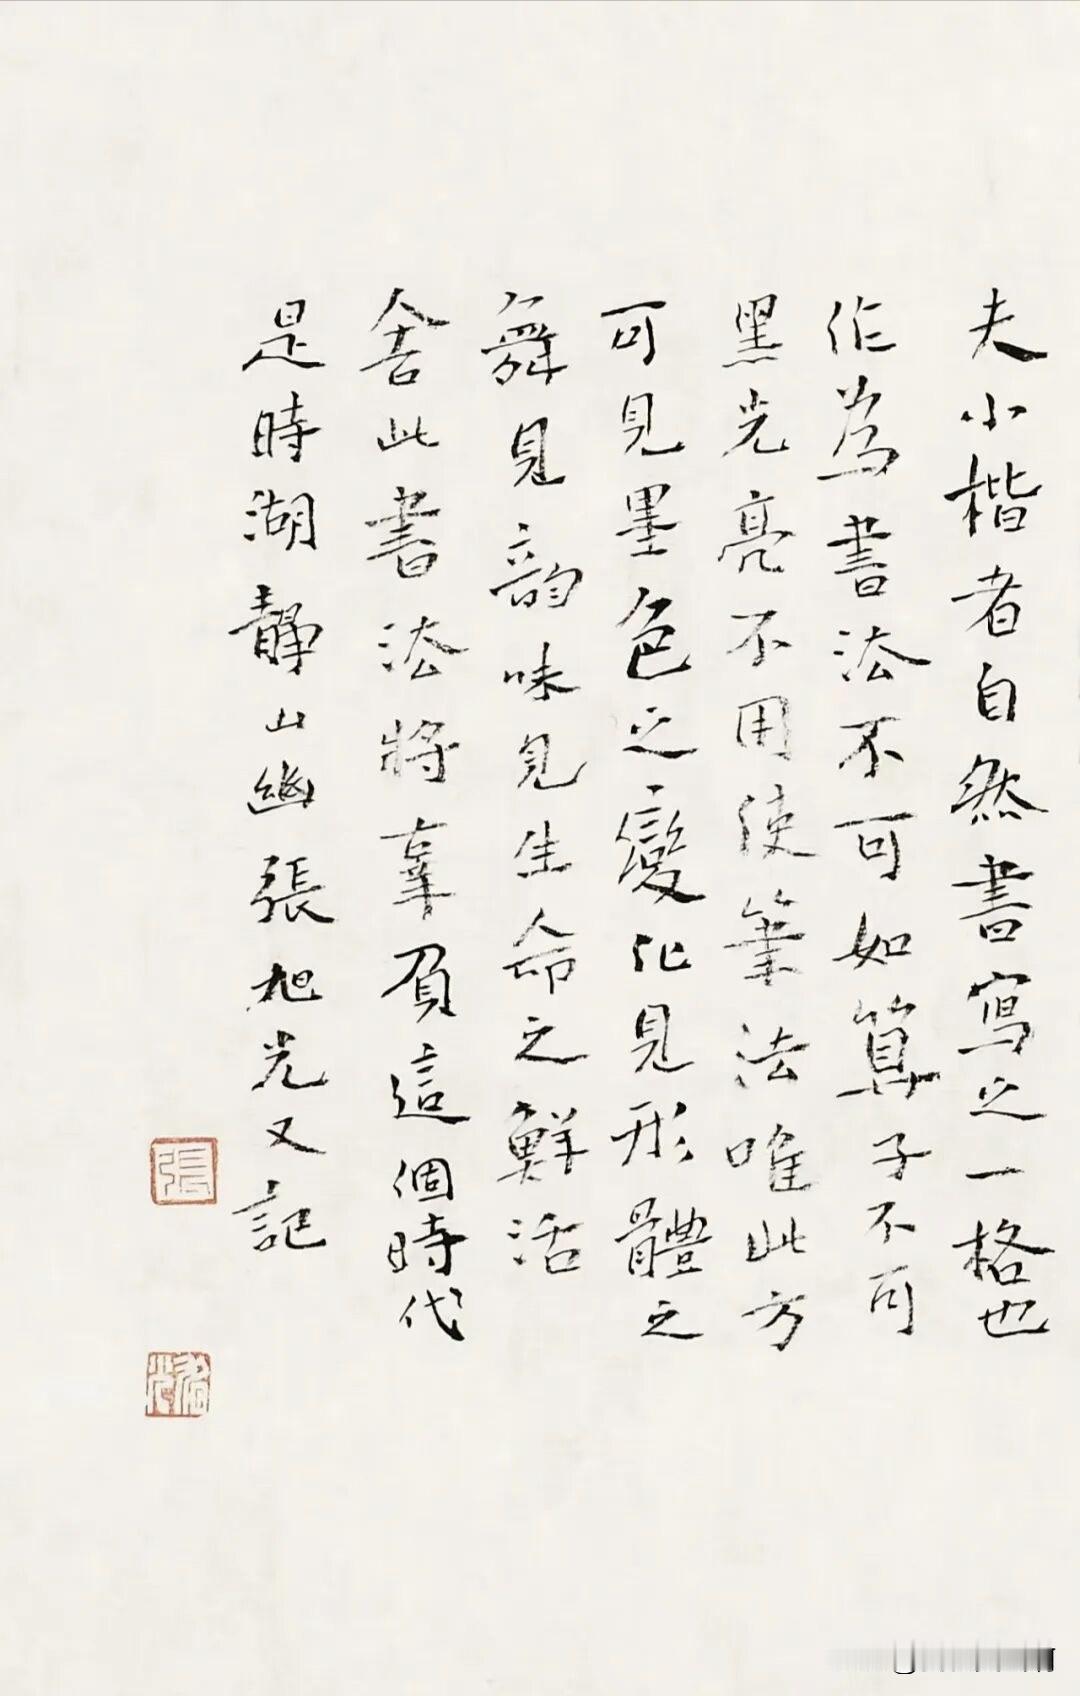 夫小楷者自然書寫之一格也
作為書法不可如算子不可
黑光亮不用使筆法唯此方
可見墨色之變化見形體之
舞見韵味見生命之鮮活
舍此書法將辜負這個時代
是時湖靜山幽張旭光又記
張